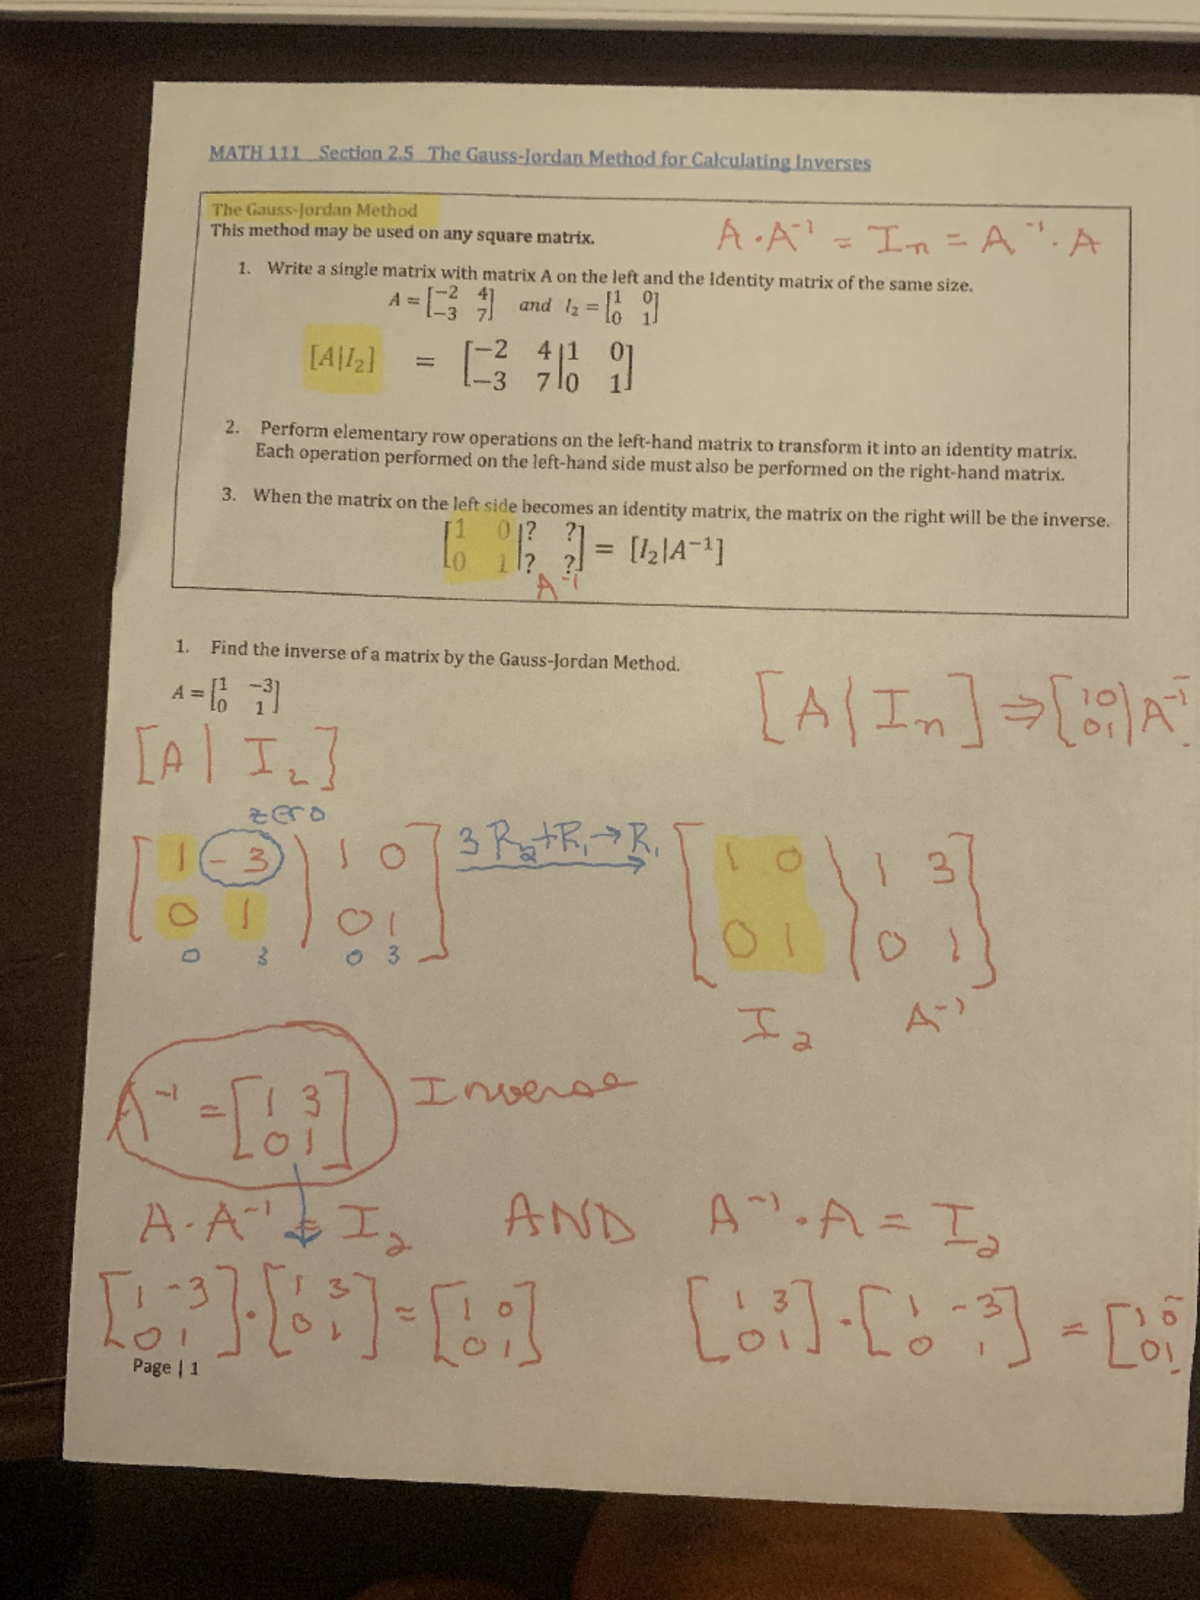 MATH 111 Section 2.5 The Gauss-Jordan Method for Calculating Inverses
The Gauss-Jordan Method
This method may be used on any square matrix.
A · A⁻¹ = In = A⁻¹ · A
1. Write a single matrix with matrix A on the left and the Identity matrix of the same size.
A = [−2 4; −3 7] and I₂ = [1 0; 0 1]
[A|I₂] = [−2 4 | 1 0; −3 7 | 0 1]
2. Perform elementary row operations on the left-hand matrix to transform it into an identity matrix.
Each operation performed on the left-hand side must also be performed on the right-hand matrix.
3. When the matrix on the left side becomes an identity matrix, the matrix on the right will be the inverse.
[1 0 | ? ?; 0 1 | ? ?] = [I₂|A⁻¹]
A⁻¹
1. Find the inverse of a matrix by the Gauss-Jordan Method.
A = [1 −3; 0 1]
[A | In] ⇒ [1 0; 0 1 | A⁻¹]
[A | I₂]
zero
[1 −3 | 1 0; 0 1 | 0 1] 3R₂+R₁→R₁ [1 0 | 1 3; 0 1 | 0 1]
0 3 0 3
I₂ A⁻¹
A⁻¹ = [1 3; 0 1] Inverse
A · A⁻¹ = I₂ AND A⁻¹ · A = I₂
[1 −3; 0 1] · [1 3; 0 1] = [1 0; 0 1] [1 3; 0 1] · [1 −3; 0 1] = [1 0; 0 1]
Page | 1